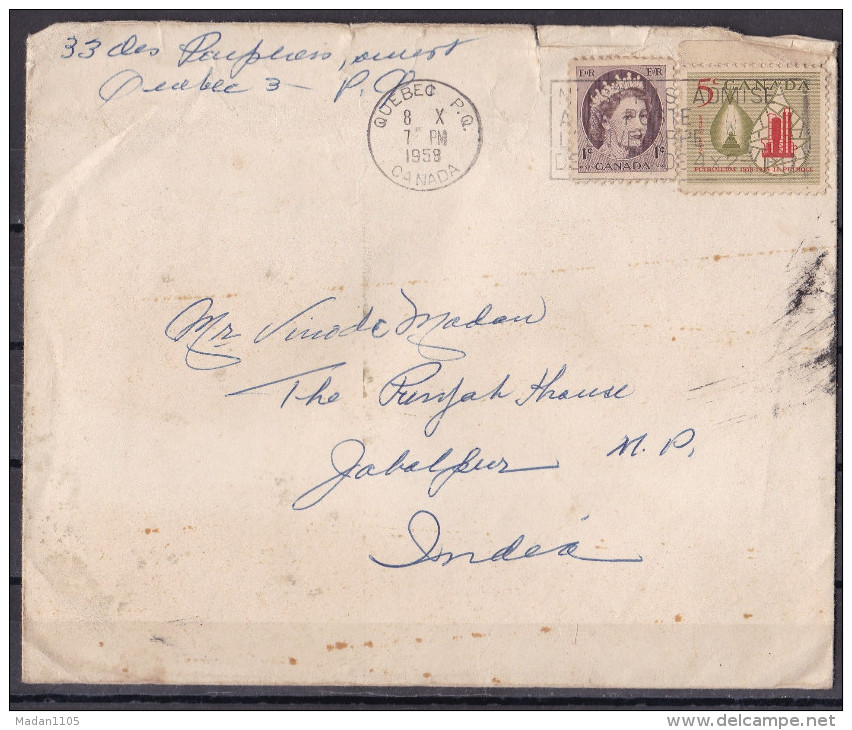 33 des Peupliers, ouest
Quebec 3 - P.Q.
QUEBEC P.Q.
8 X
7 PM
1958
CANADA
E II R E II R
1¢ CANADA 1¢
5¢ CANADA
Mr Vinode Madan
The Punjab House
Jabalpur M.P.
India
Madan1105
www.delcampe.net